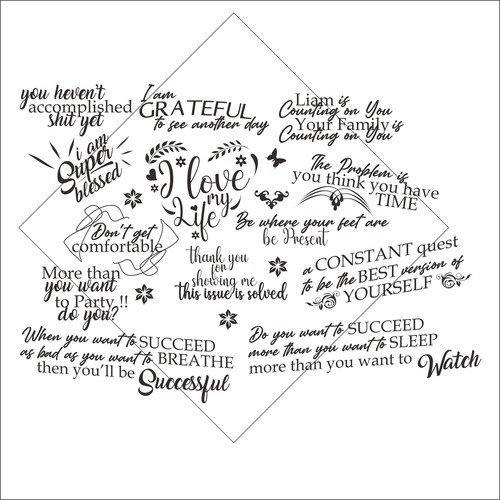 you heven't
accomplished
shit yet
I am
GRATEFUL
to see another day
Liam is
Counting on You
Your Family is
Counting on You
i am
Super
blessed
I love
my
Life
The Problem is
you think you have
TIME
Don't get
comfortable
Be where your feet are
be Present
thank you
for
showing me
this issue is solved
a CONSTANT quest
to be the BEST version of
YOURSELF
More than
you want
to Party !!
do you?
When you want to SUCCEED
as bad as you want to BREATHE
then you'll be Successful
Do you want to SUCCEED
more than you want to SLEEP
more than you want to Watch